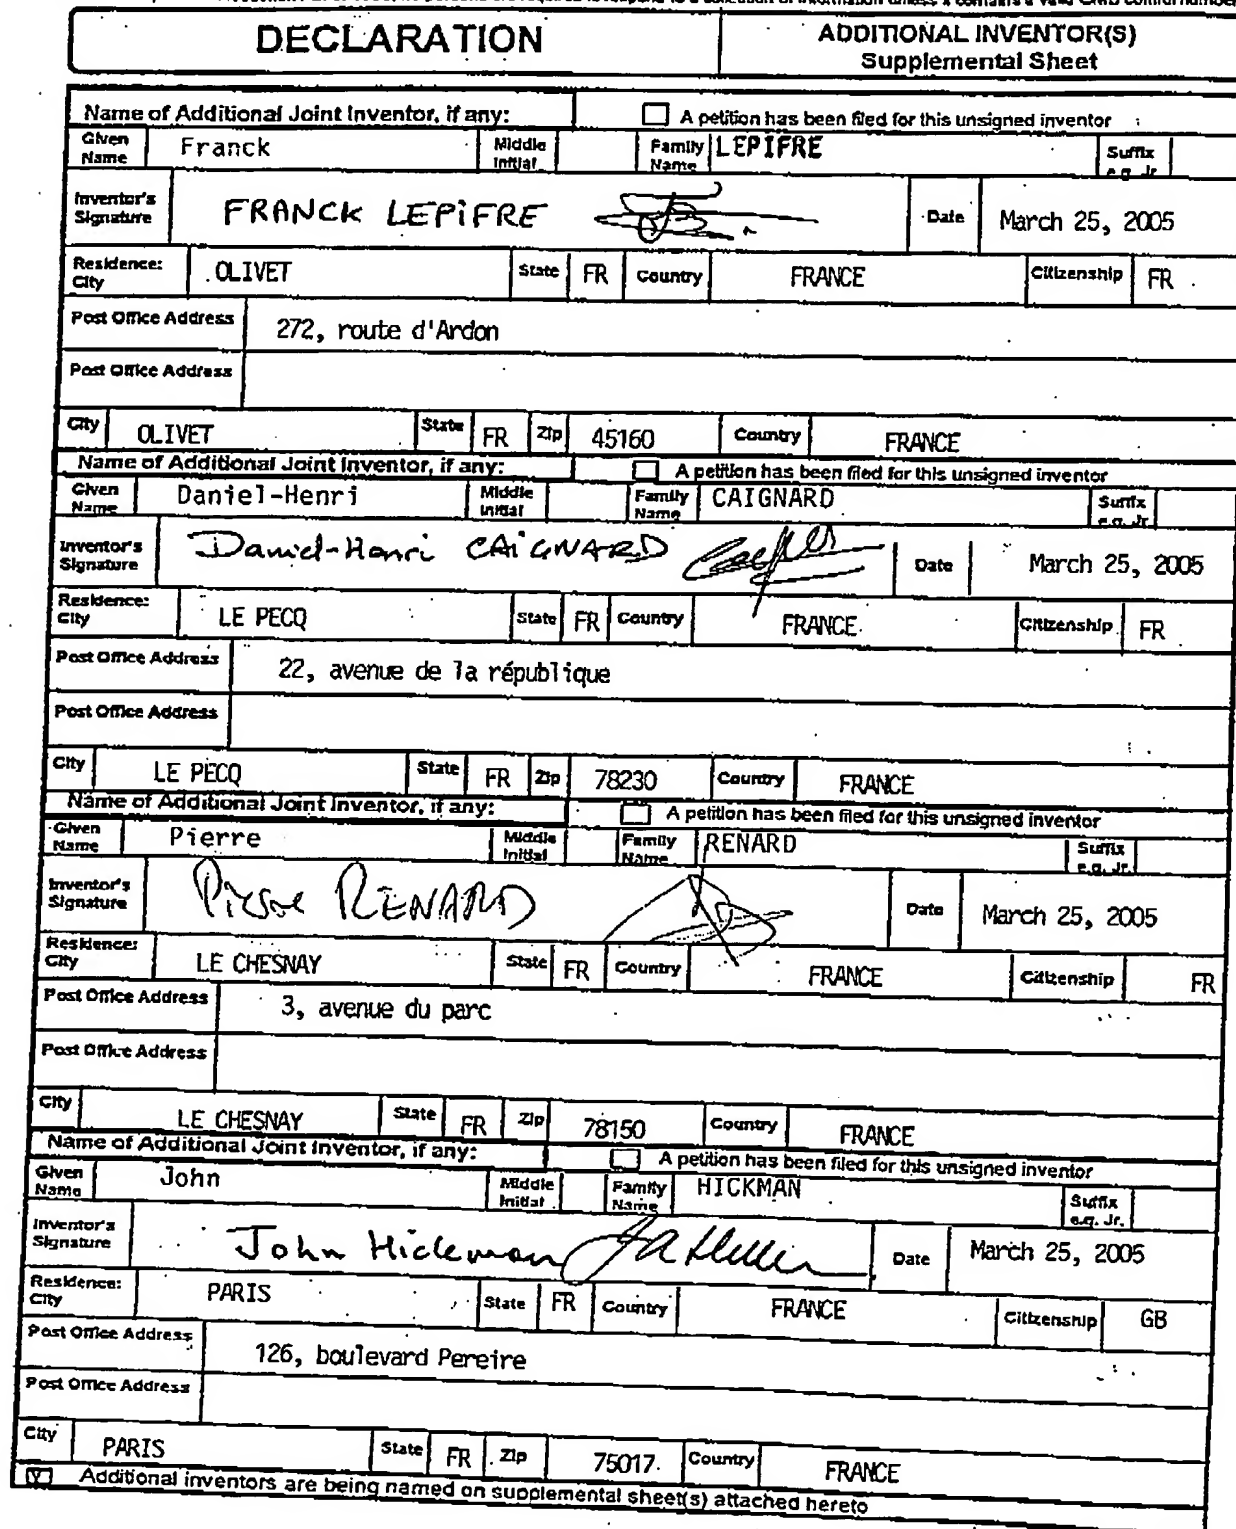 DECLARATION
ADDITIONAL INVENTOR(S)
Supplemental Sheet
Name of Additional Joint Inventor, if any:
A petition has been filed for this unsigned inventor
Given Name Franck Middle Initial Family Name LEPIFRE Suffix e.g. Jr.
Inventor's Signature FRANCK LEPIFRE Date March 25, 2005
Residence: City OLIVET State FR Country FRANCE Citizenship FR
Post Office Address 272, route d'Ardon
Post Office Address
City OLIVET State FR Zip 45160 Country FRANCE
Name of Additional Joint Inventor, if any:
A petition has been filed for this unsigned inventor
Given Name Daniel-Henri Middle Initial Family Name CAIGNARD Suffix e.g. Jr
Inventor's Signature Daniel-Henri CAIGNARD Date March 25, 2005
Residence: City LE PECQ State FR Country FRANCE Citizenship FR
Post Office Address 22, avenue de la république
Post Office Address
City LE PECQ State FR Zip 78230 Country FRANCE
Name of Additional Joint Inventor, if any:
A petition has been filed for this unsigned inventor
Given Name Pierre Middle Initial Family Name RENARD Suffix e.g. Jr.
Inventor's Signature Pierre RENARD Date March 25, 2005
Residence: City LE CHESNAY State FR Country FRANCE Citizenship FR
Post Office Address 3, avenue du parc
Post Office Address
City LE CHESNAY State FR Zip 78150 Country FRANCE
Name of Additional Joint Inventor, if any:
A petition has been filed for this unsigned inventor
Given Name John Middle Initial Family Name HICKMAN Suffix e.g. Jr.
Inventor's Signature John Hickman Date March 25, 2005
Residence: City PARIS State FR Country FRANCE Citizenship GB
Post Office Address 126, boulevard Pereire
Post Office Address
City PARIS State FR Zip 75017 Country FRANCE
Additional inventors are being named on supplemental sheet(s) attached hereto